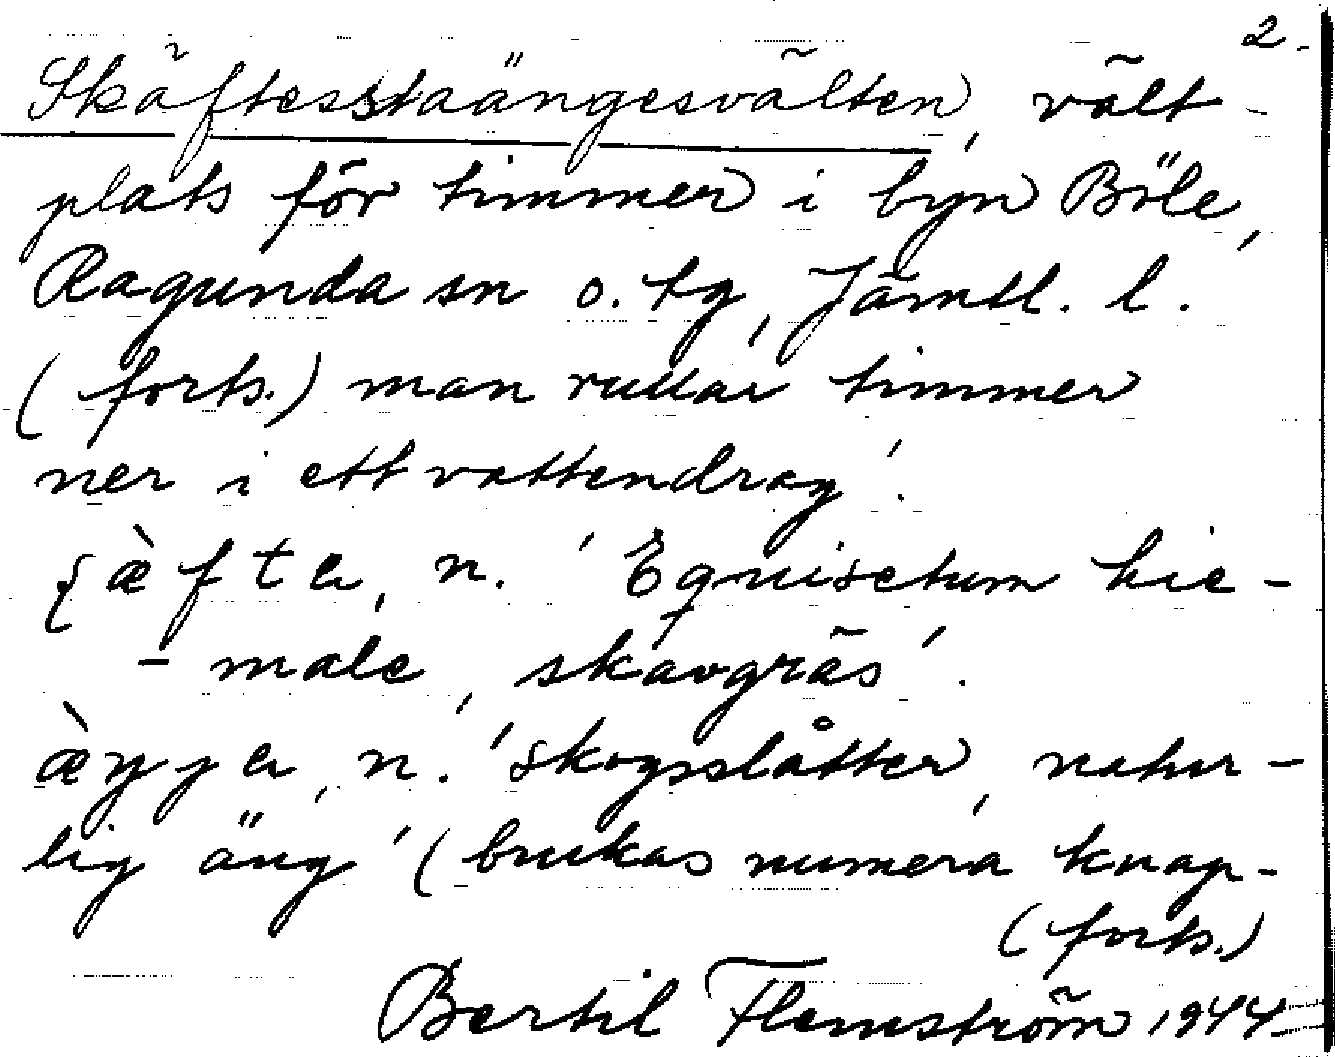 2.
Skäftesstaängesvälten, vält-
plats för timmer i byn Böle,
Ragunda sn o. tg, Jämtl. l.
(forts.) man rullar timmer
ner i ett vattendrag'.
ʃæ̀fta, n. 'Equisetum hie-
-male, skavgräs'.
æ̀ŋɟa, n. 'skogsslåtter, natur-
lig äng' (brukas numera knap-
(forts.)
Bertil Flemström 1944